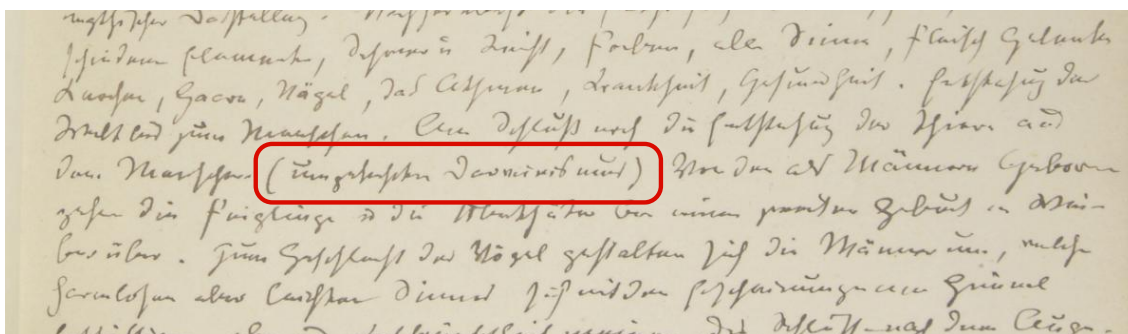 mythischer Darstellung.
schiedene Elemente, Schmerz u Lust, Farben, alle Sinne, Fleisch Gelenke
Knochen, Haare, Nägel, das Athmen, Krankheit, Gesundheit. Entstehung der
Welt bis zum Menschen. Am Schluß noch die Entstehung der Thiere aus
dem Menschen (umgekehrter Darwinismus) Von den als Männern Geborenen
gehen die Feiglinge u die Übelthäter bei einer zweiten Geburt in Wei-
ber über. Zum Geschlecht der Vögel gestalten sich die Männer um, welche
harmlosen aber leichten Sinnes sich mit den Erscheinungen am Himmel